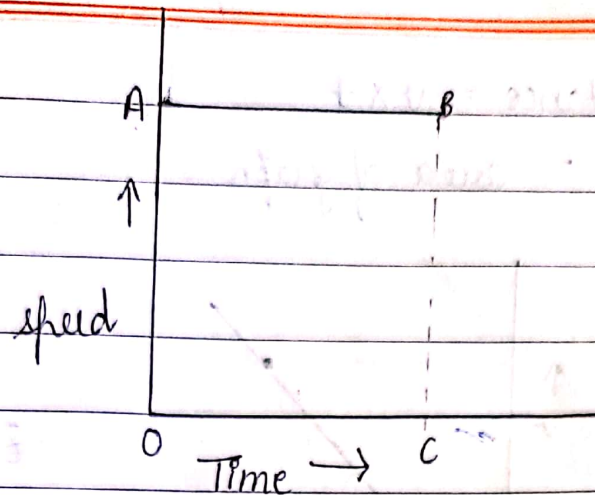 A B
↑
speed
O C
Time →